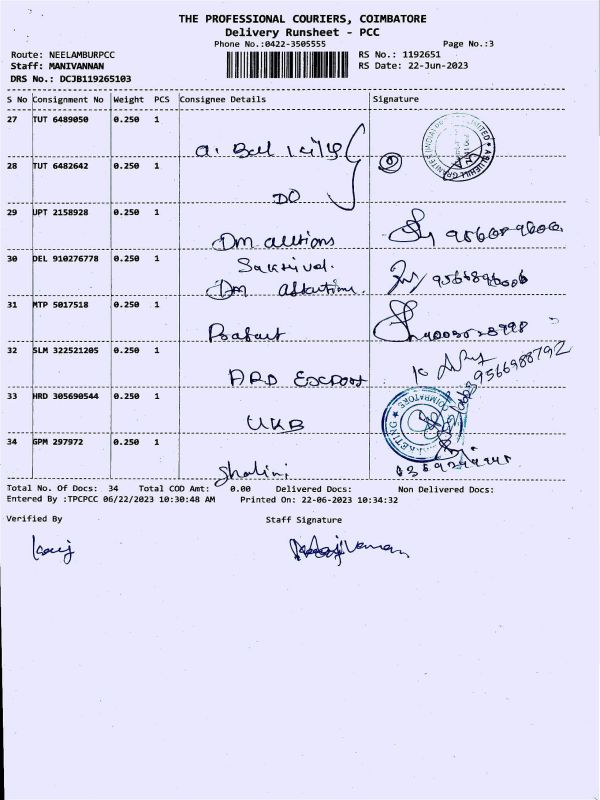 THE PROFESSIONAL COURIERS, COIMBATORE
Delivery Runsheet - PCC
Phone No.:0422-3505555
Page No.:3
Route: NEELAMBURPCC
RS No.: 1192651
Staff: MANIVANNAN
RS Date: 22-Jun-2023
DRS No.: DCJB119265103
S No Consignment No Weight PCS Consignee Details Signature
27 TUT 6489050 0.250 1
28 TUT 6482642 0.250 1
DO
29 UPT 2158928 0.250 1
Dm
30 DEL 910276778 0.250 1
Dm
31 MTP 5017518 0.250 1
32 SLM 322521205 0.250 1
ARD Export
9566988792
33 HRD 305690544 0.250 1
UKB
34 GPM 297972 0.250 1
Shalini
Total No. Of Docs: 34 Total COD Amt: 0.00 Delivered Docs: Non Delivered Docs:
Entered By :TPCPCC 06/22/2023 10:30:48 AM Printed On: 22-06-2023 10:34:32
Verified By Staff Signature